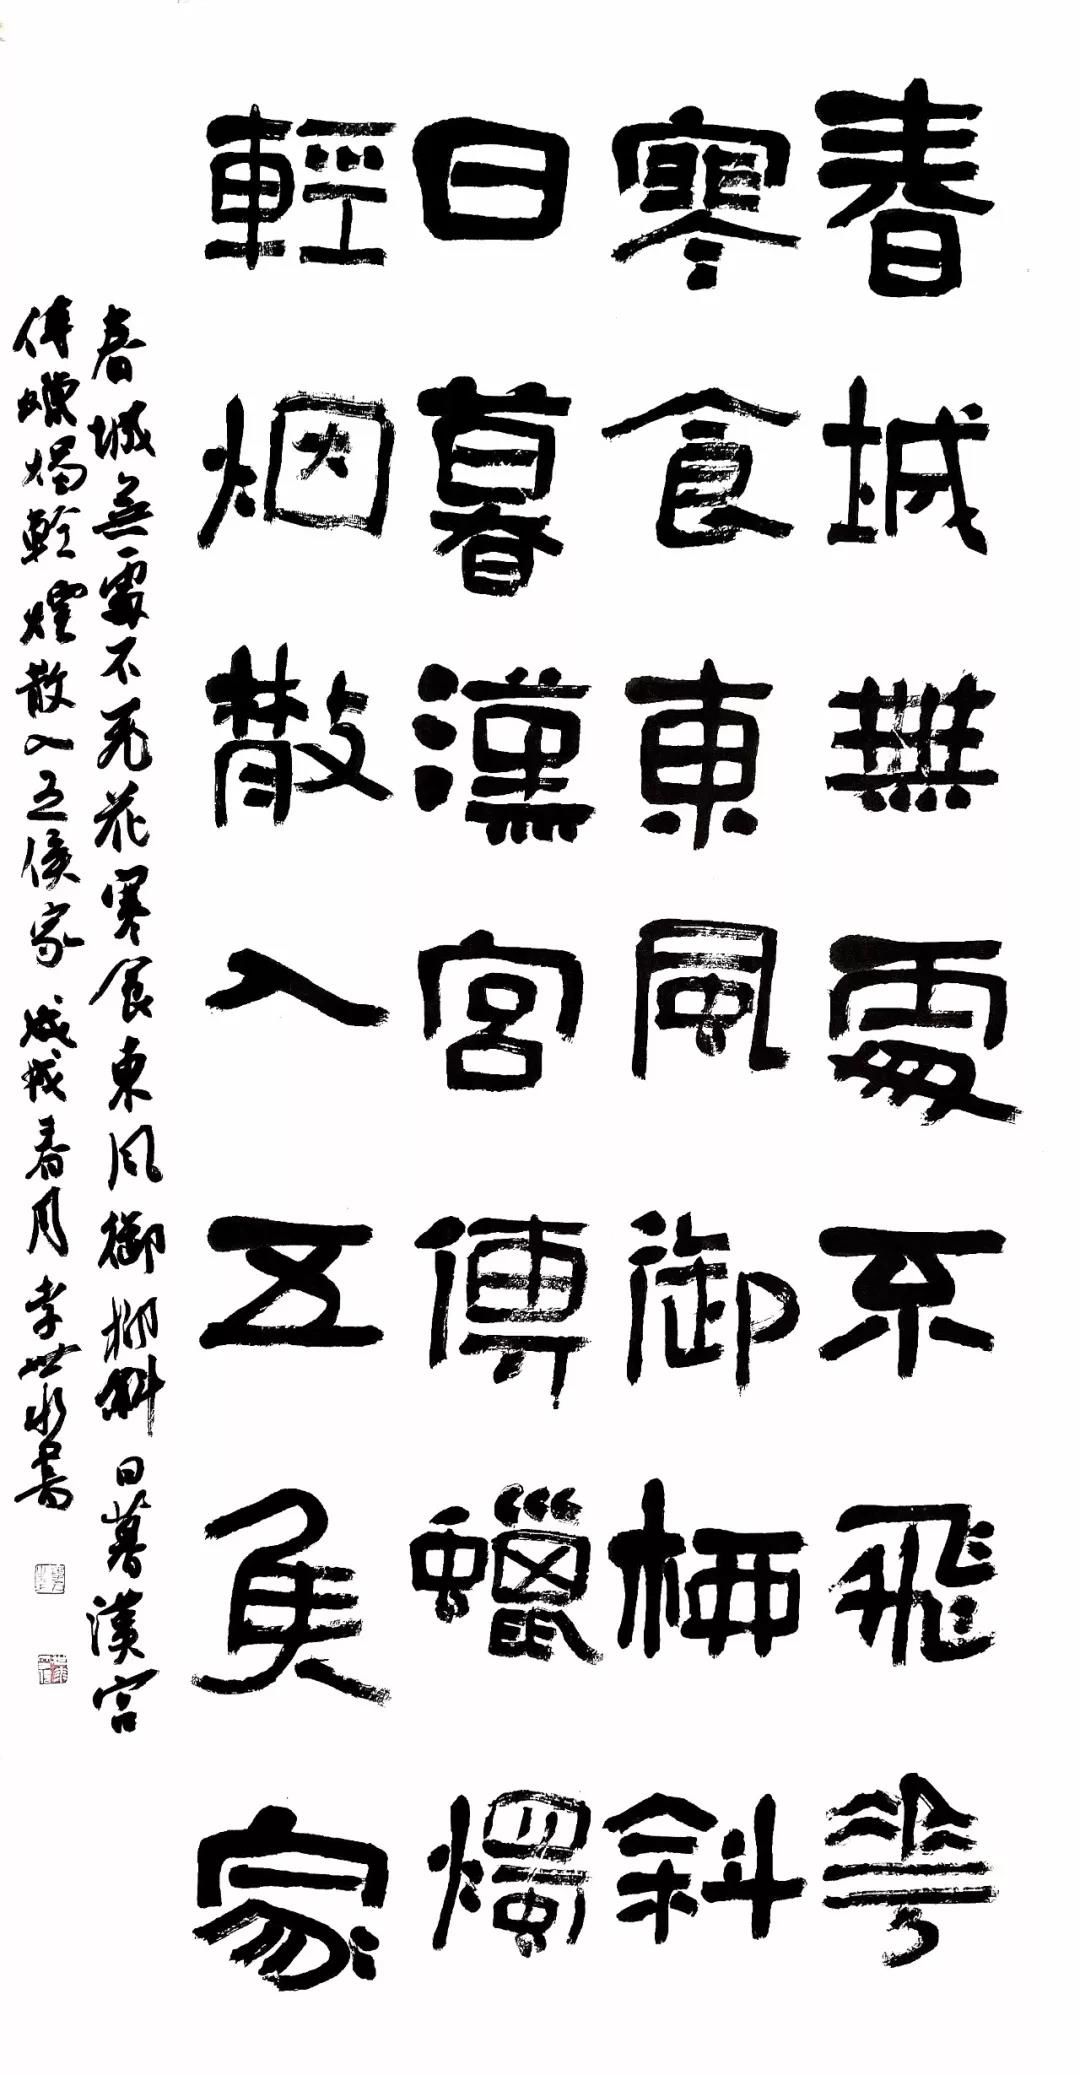 春城無處不飛花
寒食東風御柳斜
日暮漢宮傳蠟燭
輕烟散入五侯家
春城無處不飛花寒食東風御柳斜日暮漢宮
傳蠟燭輕煙散入五侯家 戊戌春月 書